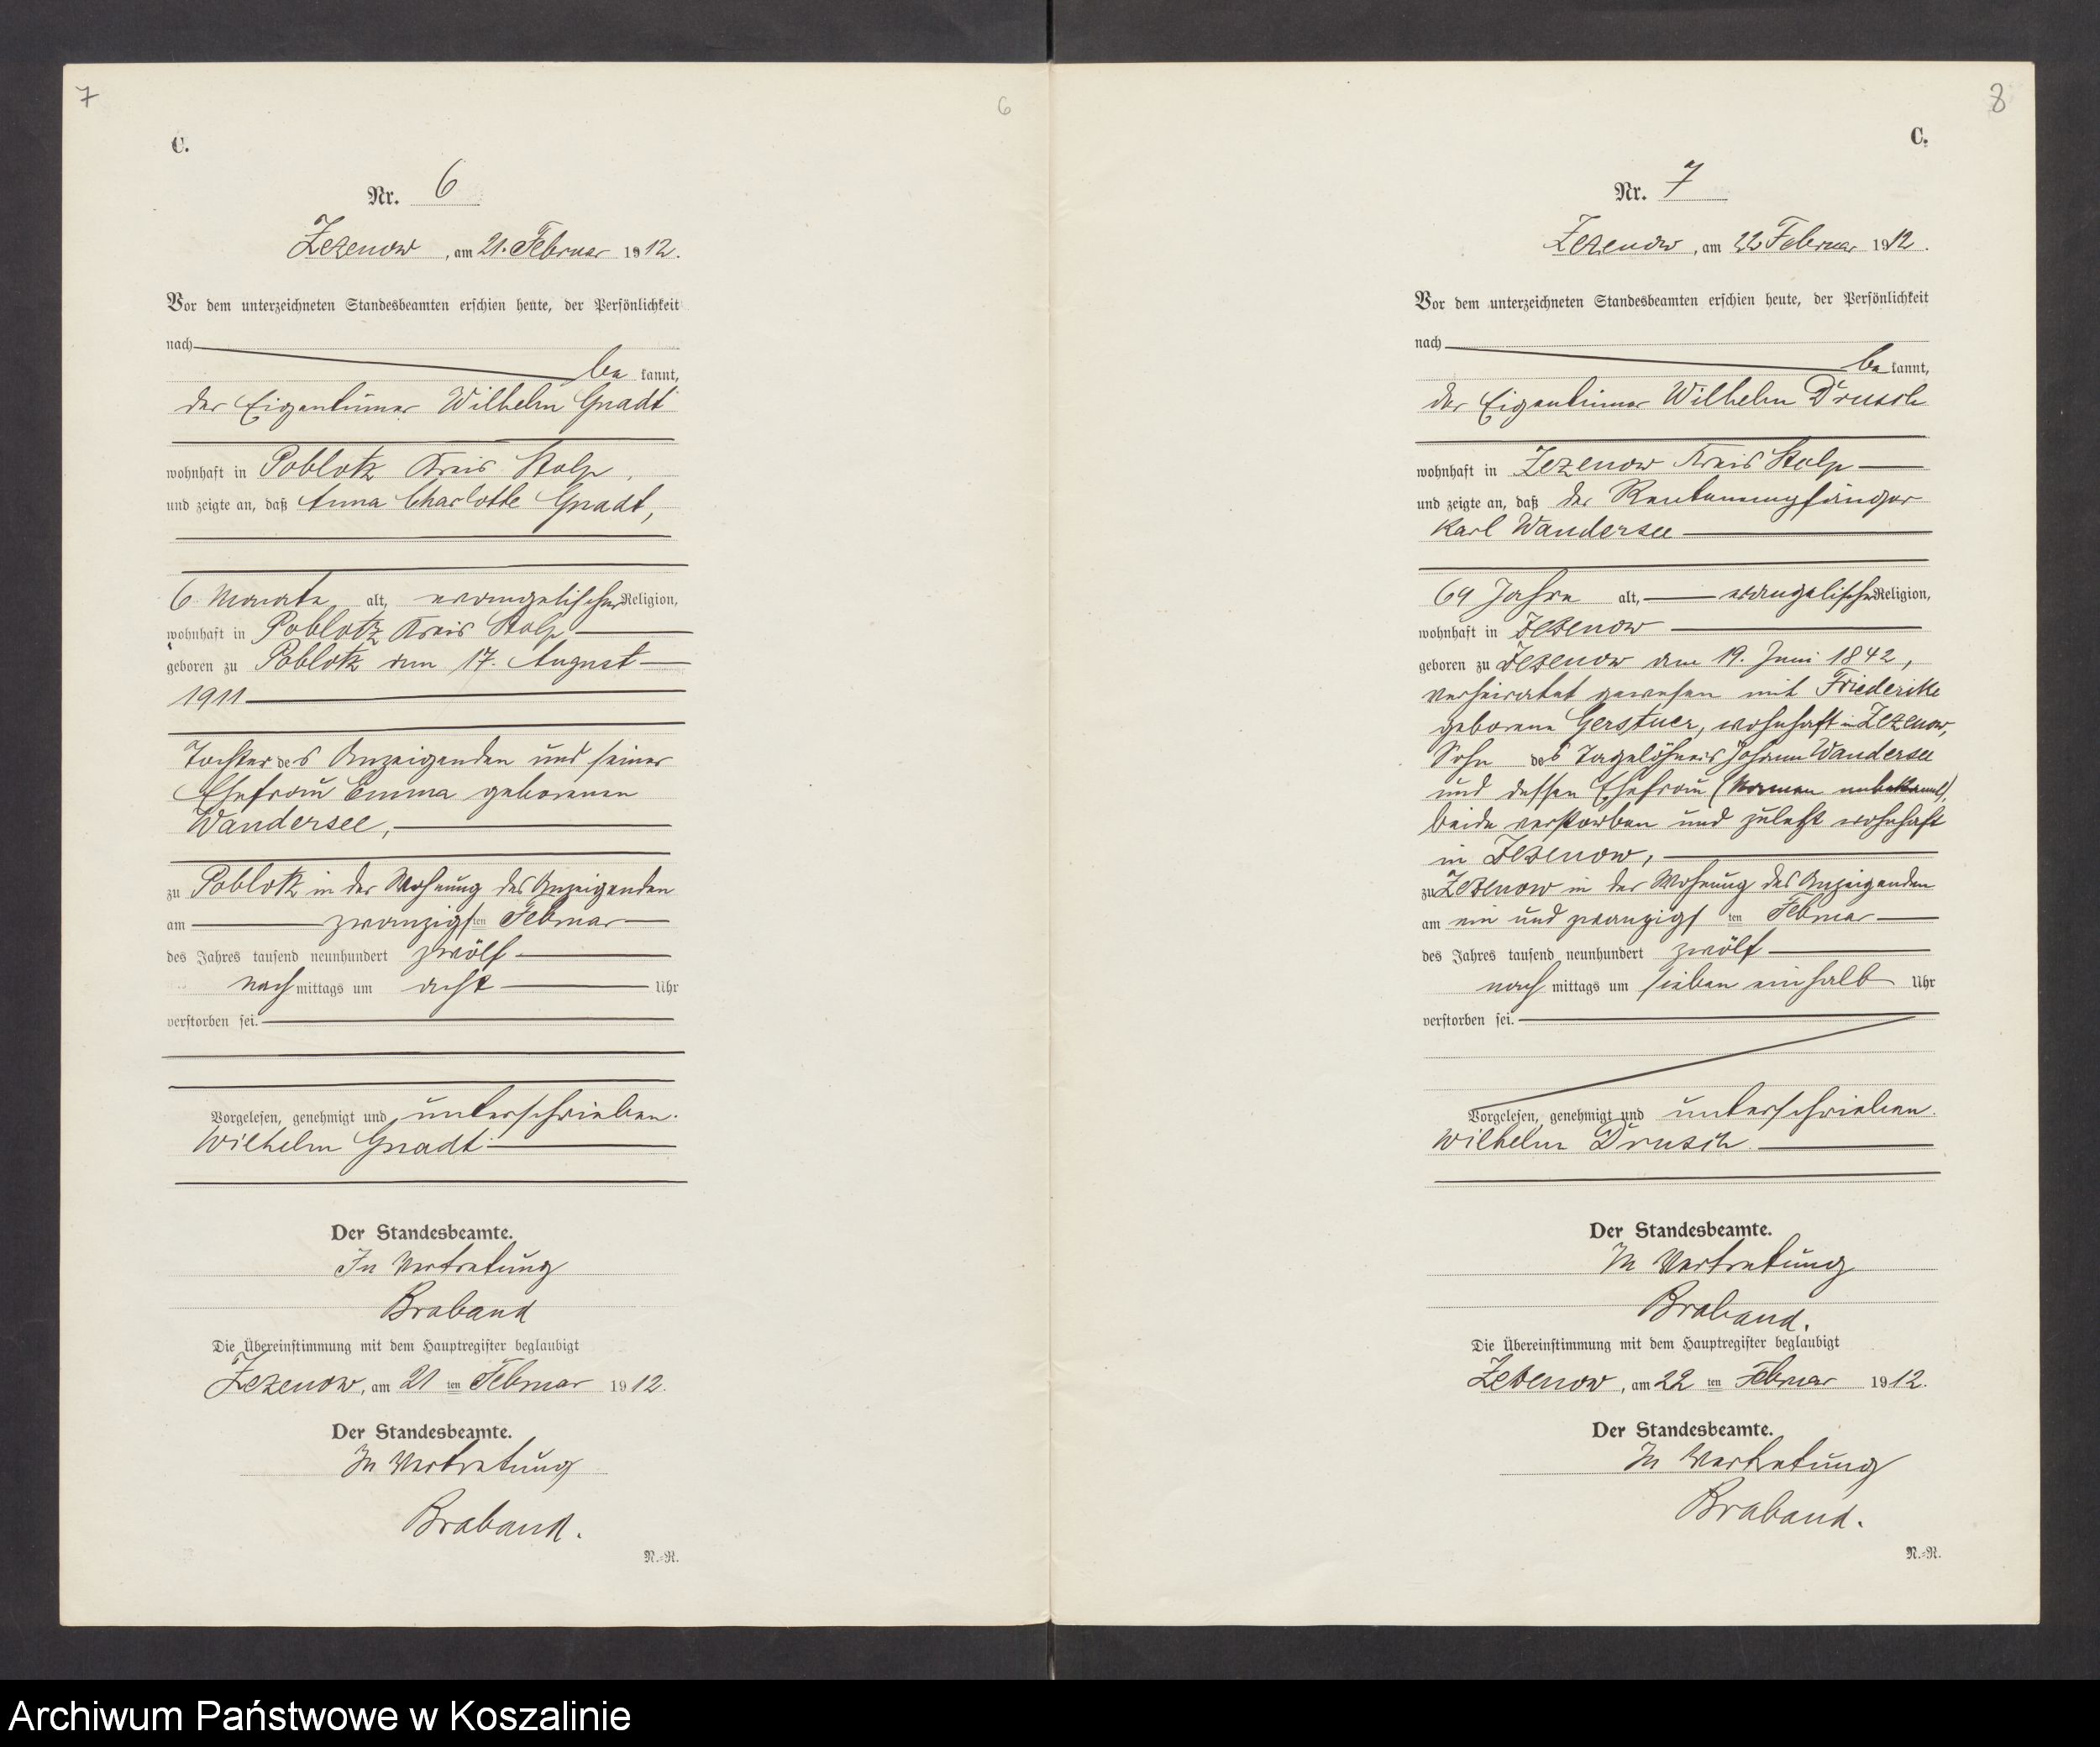 7
6
C.
Nr. 6
Zezenow, am 21. Februar 1912.
Vor dem unterzeichneten Standesbeamten erschien heute, der Persönlichkeit
nach
be kannt,
der Eigentümer Wilhelm Gnadt
wohnhaft in Poblotz Kreis Stolp,
und zeigte an, daß Anna Charlotte Gnadt,
6 Monate alt, evangelischer Religion,
wohnhaft in Poblotz Kreis Stolp
geboren zu Poblotz am 17. August
1911
Tochter des Anzeigenden und seiner
Ehefrau Emma geborenen
Wandersee,
zu Poblotz in der Wohnung des Anzeigenden
am zwanzigsten Februar
des Jahres tausend neunhundert zwölf
nachmittags um acht Uhr
verstorben sei.
Vorgelesen, genehmigt und unterschrieben.
Wilhelm Gnadt
Der Standesbeamte.
In Vertretung
Braband
Die Übereinstimmung mit dem Hauptregister beglaubigt
Zezenow, am 21 ten Februar 1912.
Der Standesbeamte.
In Vertretung
Braband.
N.-R.
8
C.
Nr. 7
Zezenow, am 22 Februar 1912.
Vor dem unterzeichneten Standesbeamten erschien heute, der Persönlichkeit
nach
be kannt,
der Eigentümer Wilhelm Drusch
wohnhaft in Zezenow Kreis Stolp
und zeigte an, daß der Rentenempfänger
Karl Wandersee
69 Jahre alt, evangelischer Religion,
wohnhaft in Zezenow
geboren zu Zezenow am 19. Juni 1842,
verheiratet gewesen mit Friederike
geborene Gerstner, wohnhaft in Zezenow,
Sohn des Tagelöhners Johann Wandersee
und dessen Ehefrau (Namen unbekannt),
beide verstorben und zuletzt wohnhaft
in Zezenow,
zu Zezenow in der Wohnung des Anzeigenden
am ein und zwanzigsten Februar
des Jahres tausend neunhundert zwölf
nachmittags um sieben einhalb Uhr
verstorben sei.
Vorgelesen, genehmigt und unterschrieben.
Wilhelm Drusch
Der Standesbeamte.
In Vertretung
Braband.
Die Übereinstimmung mit dem Hauptregister beglaubigt
Zezenow, am 22 ten Februar 1912.
Der Standesbeamte.
In Vertretung
Braband.
N.-R.
Archiwum Państwowe w Koszalinie